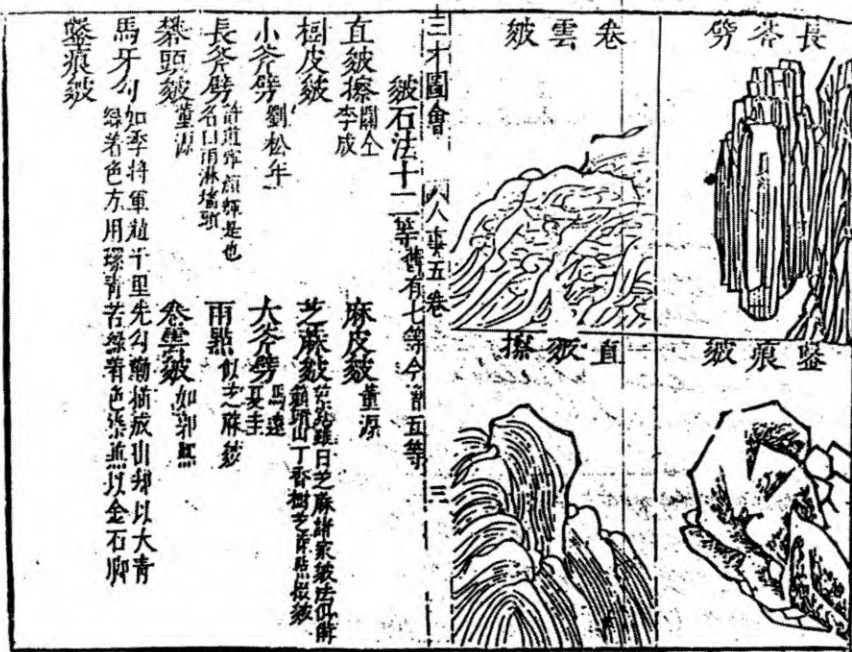 長斧劈
卷雲皴
鏨痕皴
直皴擦
三才圖會　人事五卷　三
皴石法十二等 舊有七等今諸五等
直皴擦 關仝 李成
麻皮皴 董源
樹皮皴
芝麻皴 雖曰芝麻諸家皴法俱 山丁香樹芝麻點綴皴
小斧劈 劉松年
大斧劈 馬遠 夏圭
長斧劈 許道寧顏輝是也 名曰雨淋墻頭
雨點 似芝麻皴
礬頭皴 董源
卷雲皴 如郭熙
馬牙勾 如李將軍趙千里先勾勒描成山却以大青
綠着色方用螺青苦綠着色 以金石脚
鏨痕皴